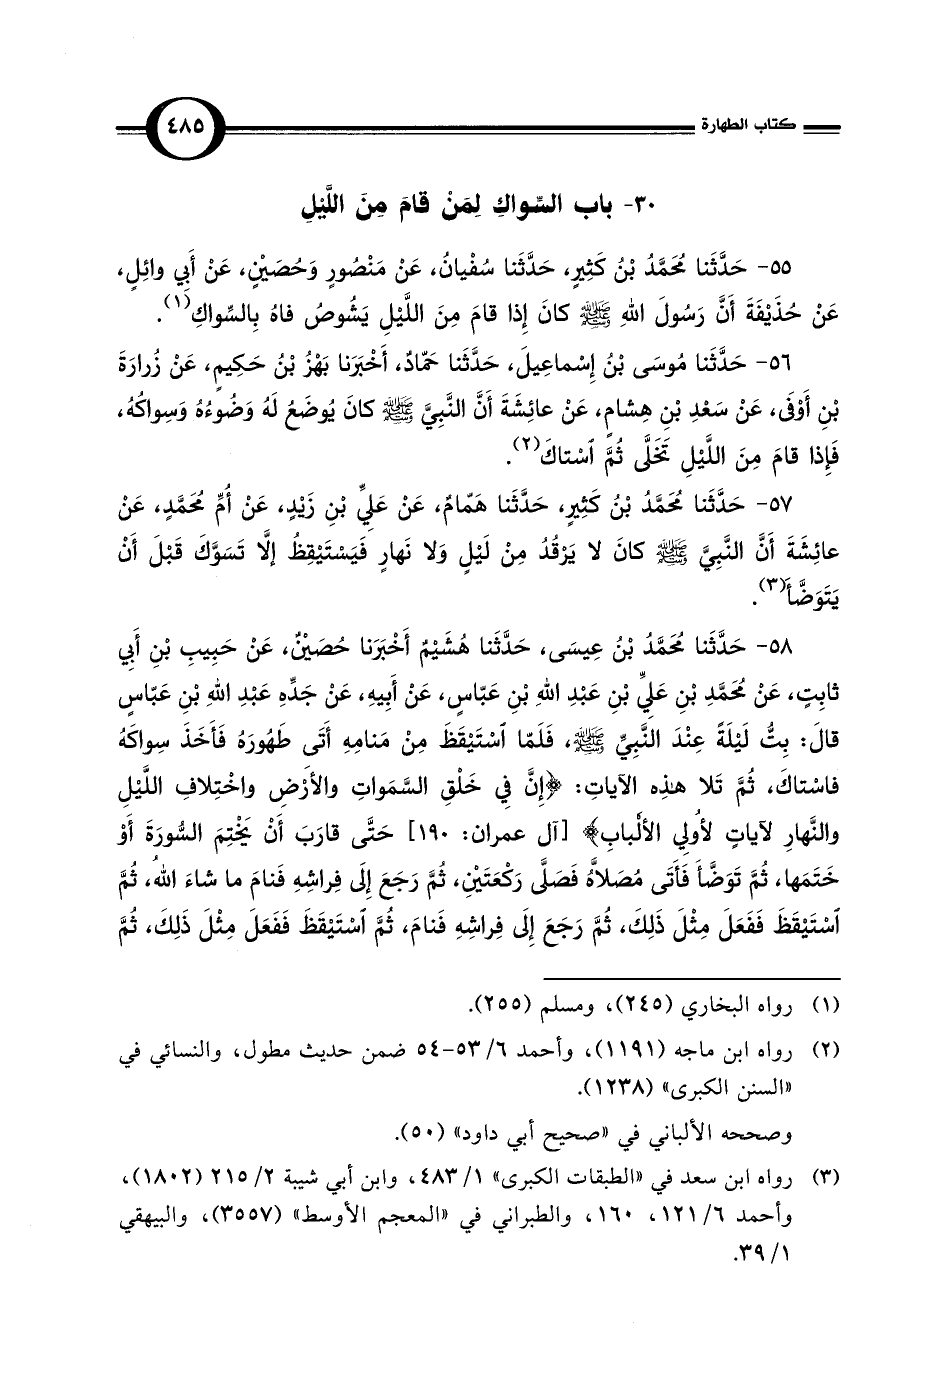 كتاب الطهارة
٤٨٥
٣٠- باب السِّواكِ لِمَنْ قامَ مِنَ اللَّيْلِ
٥٥- حَدَّثَنا مُحَمَّدُ بْنُ كَثِيرٍ، حَدَّثَنا سُفْيانُ، عَنْ مَنْصُورٍ وَحُصَيْنٍ، عَنْ أَبِي وائِلٍ،
عَنْ حُذَيْفَةَ أَنَّ رَسُولَ اللهِ ﷺ كانَ إِذا قامَ مِنَ اللَّيْلِ يَشُوصُ فاهُ بِالسِّواكِ(١).
٥٦- حَدَّثَنا مُوسَى بْنُ إِسْماعِيلَ، حَدَّثَنا حَمّادٌ، أَخْبَرَنا بَهْزُ بْنُ حَكِيمٍ، عَنْ زُرارَةَ
بْنِ أَوْفَى، عَنْ سَعْدِ بْنِ هِشامٍ، عَنْ عائِشَةَ أَنَّ النَّبِيَّ ﷺ كانَ يُوضَعُ لَهُ وَضُوءُهُ وَسِواكُهُ،
فَإِذا قامَ مِنَ اللَّيْلِ تَخَلَّى ثُمَّ ٱسْتاكَ(٢).
٥٧- حَدَّثَنا مُحَمَّدُ بْنُ كَثِيرٍ، حَدَّثَنا هَمّامٌ، عَنْ عَلِيِّ بْنِ زَيْدٍ، عَنْ أُمِّ مُحَمَّدٍ، عَنْ
عائِشَةَ أَنَّ النَّبِيَّ ﷺ كانَ لا يَرْقُدُ مِنْ لَيْلٍ وَلا نَهارٍ فَيَسْتَيْقِظُ إِلَّا تَسَوَّكَ قَبْلَ أَنْ
يَتَوَضَّأَ(٣).
٥٨- حَدَّثَنا مُحَمَّدُ بْنُ عِيسَى، حَدَّثَنا هُشَيْمٌ أَخْبَرَنا حُصَيْنٌ، عَنْ حَبِيبِ بْنِ أَبِي
ثابِتٍ، عَنْ مُحَمَّدِ بْنِ عَلِيِّ بْنِ عَبْدِ اللهِ بْنِ عَبّاسٍ، عَنْ أَبِيهِ، عَنْ جَدِّهِ عَبْدِ اللهِ بْنِ عَبّاسٍ
قالَ: بِتُّ لَيْلَةً عِنْدَ النَّبِيِّ ﷺ، فَلَمّا ٱسْتَيْقَظَ مِنْ مَنامِهِ أَتَى طَهُورَهُ فَأَخَذَ سِواكَهُ
فاسْتاكَ، ثُمَّ تَلا هٰذِه الآياتِ: ﴿إِنَّ فِي خَلْقِ السَّمَواتِ والأَرْضِ واخْتِلافِ اللَّيْلِ
والنَّهارِ لآياتٍ لأُولِي الأَلْبابِ﴾ [آل عمران: ١٩٠] حَتَّى قارَبَ أَنْ يَخْتِمَ السُّورَةَ أَوْ
خَتَمَها، ثُمَّ تَوَضَّأَ فَأَتَى مُصَلاَّهُ فَصَلَّى رَكْعَتَيْنِ، ثُمَّ رَجَعَ إِلَى فِراشِهِ فَنامَ ما شاءَ اللهُ، ثُمَّ
ٱسْتَيْقَظَ فَفَعَلَ مِثْلَ ذَلِكَ، ثُمَّ رَجَعَ إِلَى فِراشِهِ فَنامَ، ثُمَّ ٱسْتَيْقَظَ فَفَعَلَ مِثْلَ ذَلِكَ، ثُمَّ
(١) رواه البخاري (٢٤٥)، ومسلم (٢٥٥).
(٢) رواه ابن ماجه (١١٩١)، وأحمد ٦/ ٥٣-٥٤ ضمن حديث مطول، والنسائي في
«السنن الكبرى» (١٢٣٨).
وصححه الألباني في «صحيح أبي داود» (٥٠).
(٣) رواه ابن سعد في «الطبقات الكبرى» ١/ ٤٨٣، وابن أبي شيبة ٢/ ٢١٥ (١٨٠٢)،
وأحمد ٦/ ١٢١، ١٦٠، والطبراني في «المعجم الأوسط» (٣٥٥٧)، والبيهقي
١/ ٣٩.